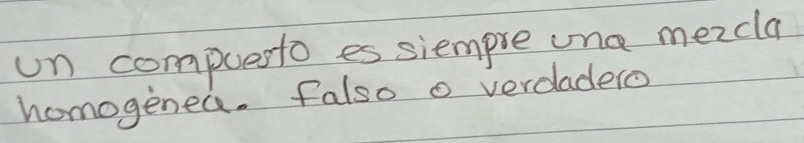 un compuesto es siempre una mezcla
homogénea. falso o verdadero